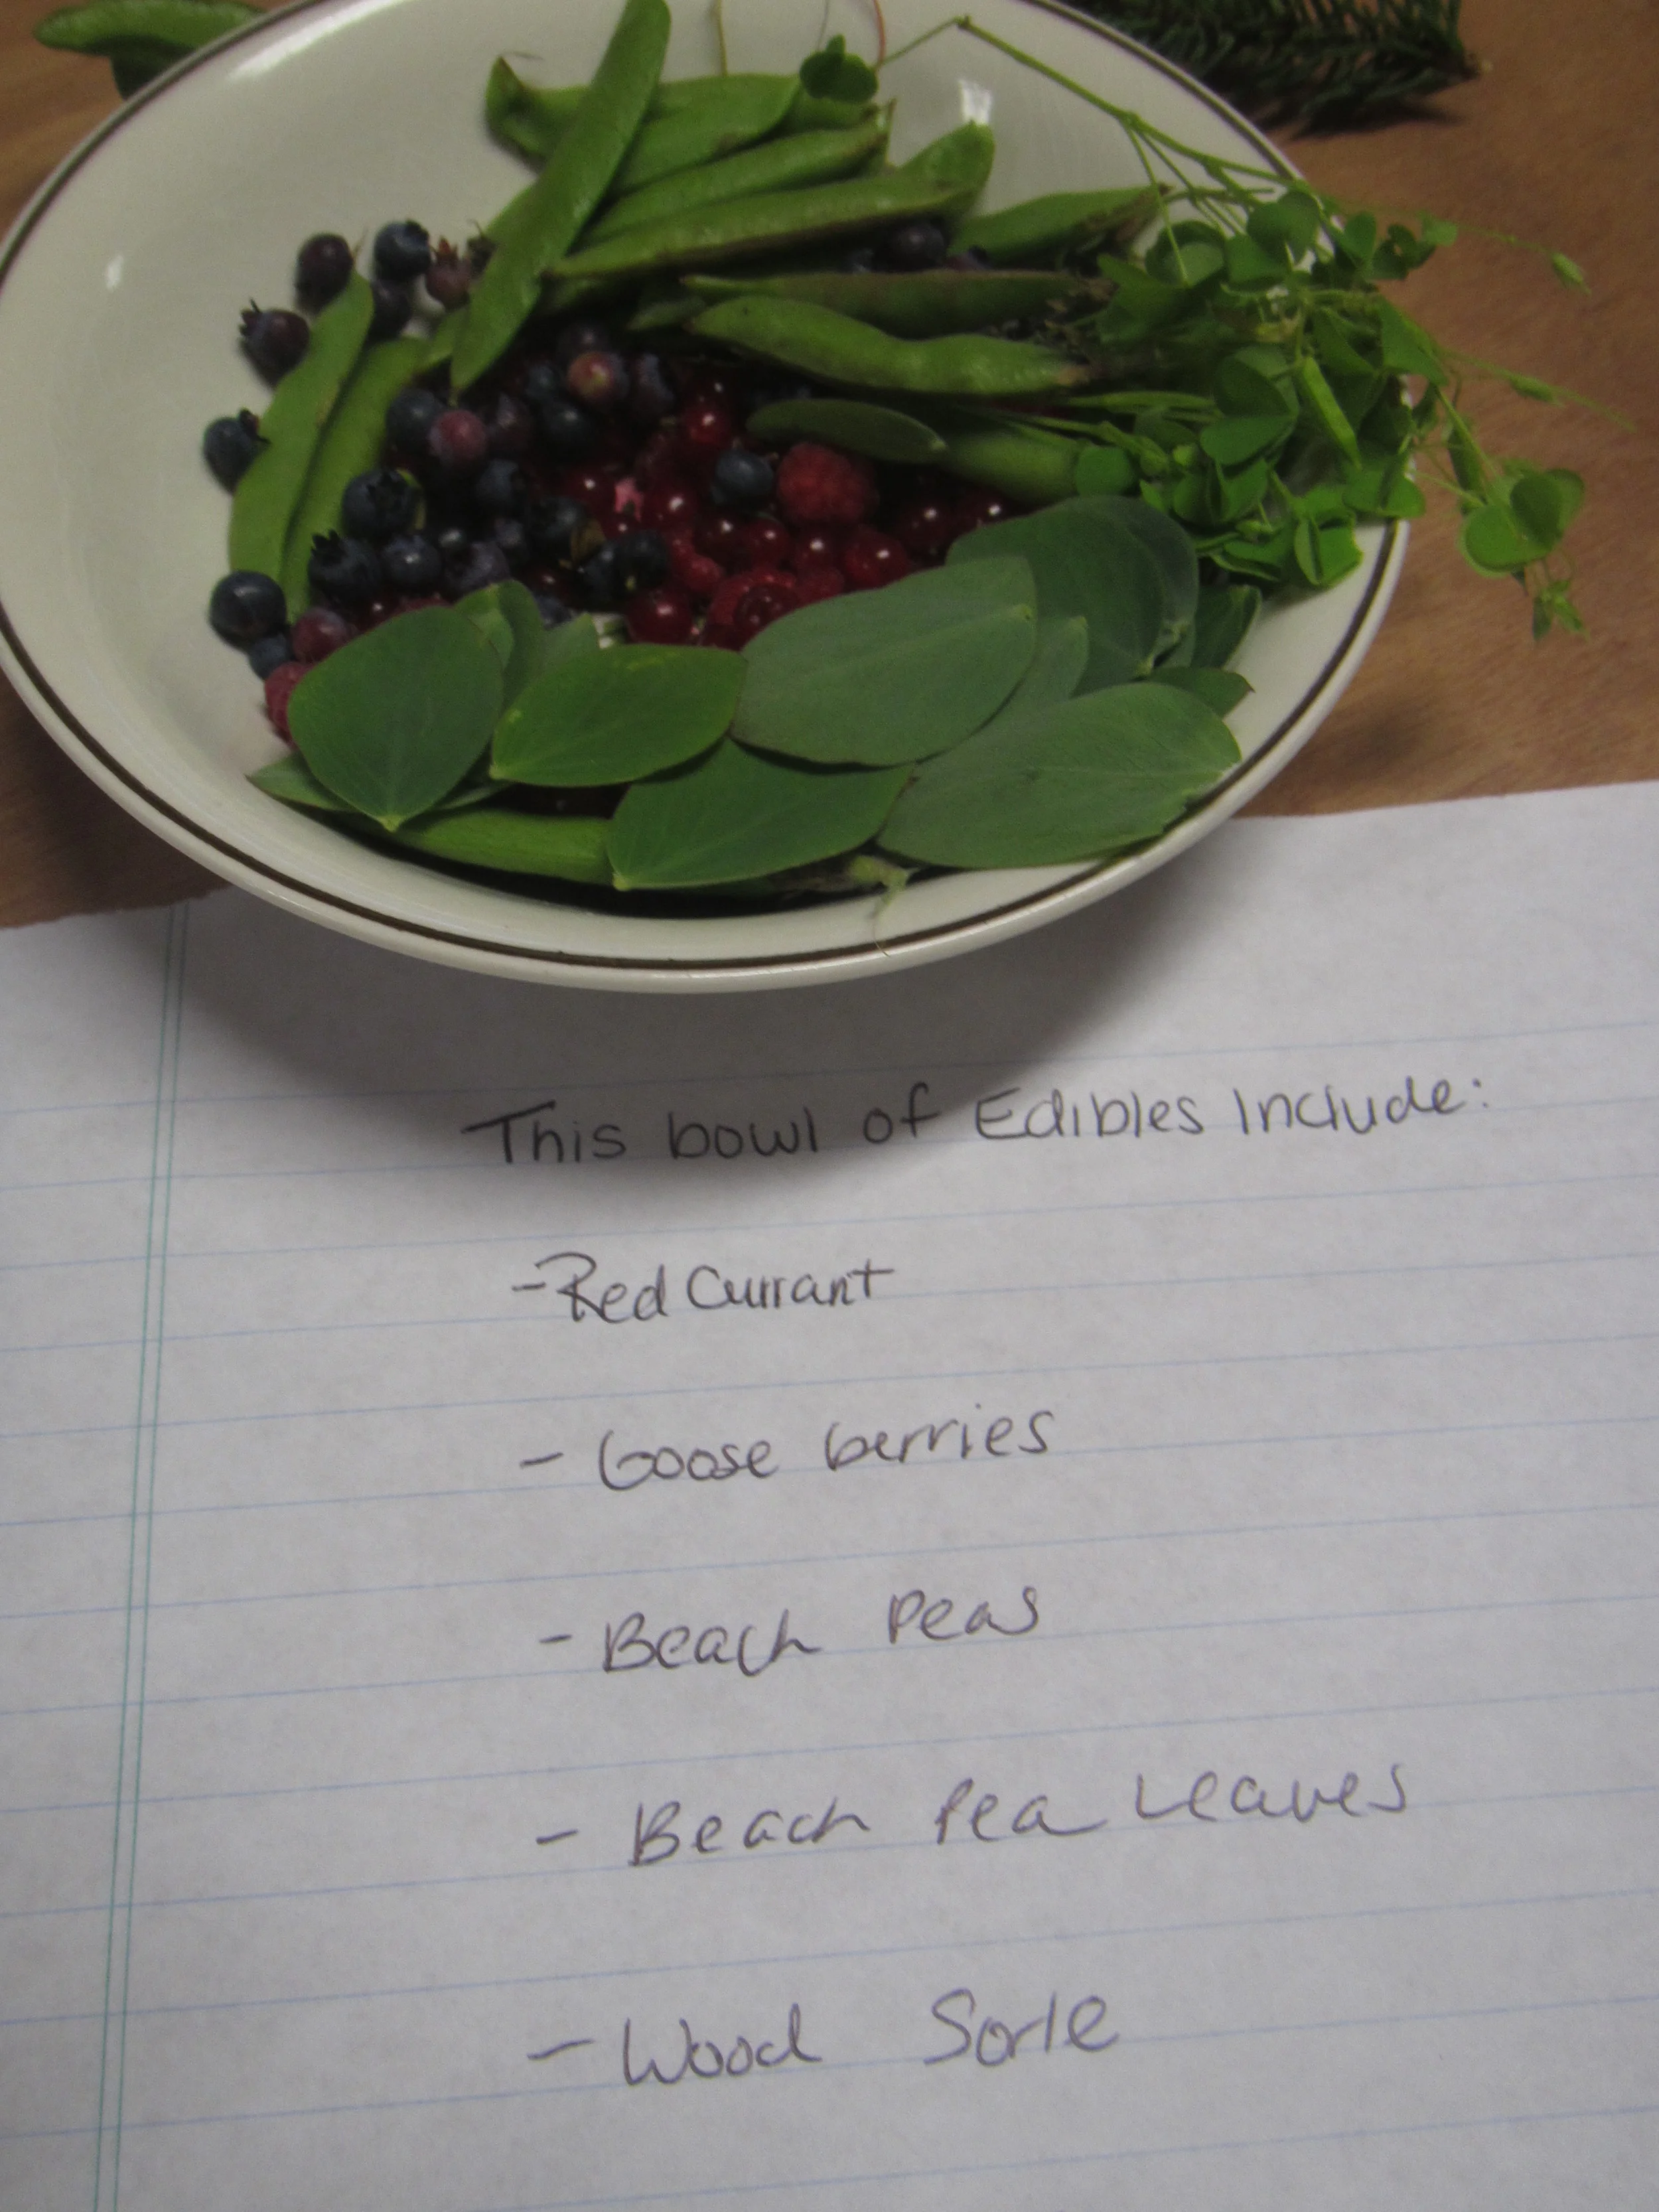 This bowl of Edibles Include:
- Red Currant
- Goose berries
- Beach Peas
- Beach Pea Leaves
- Wood Sorle